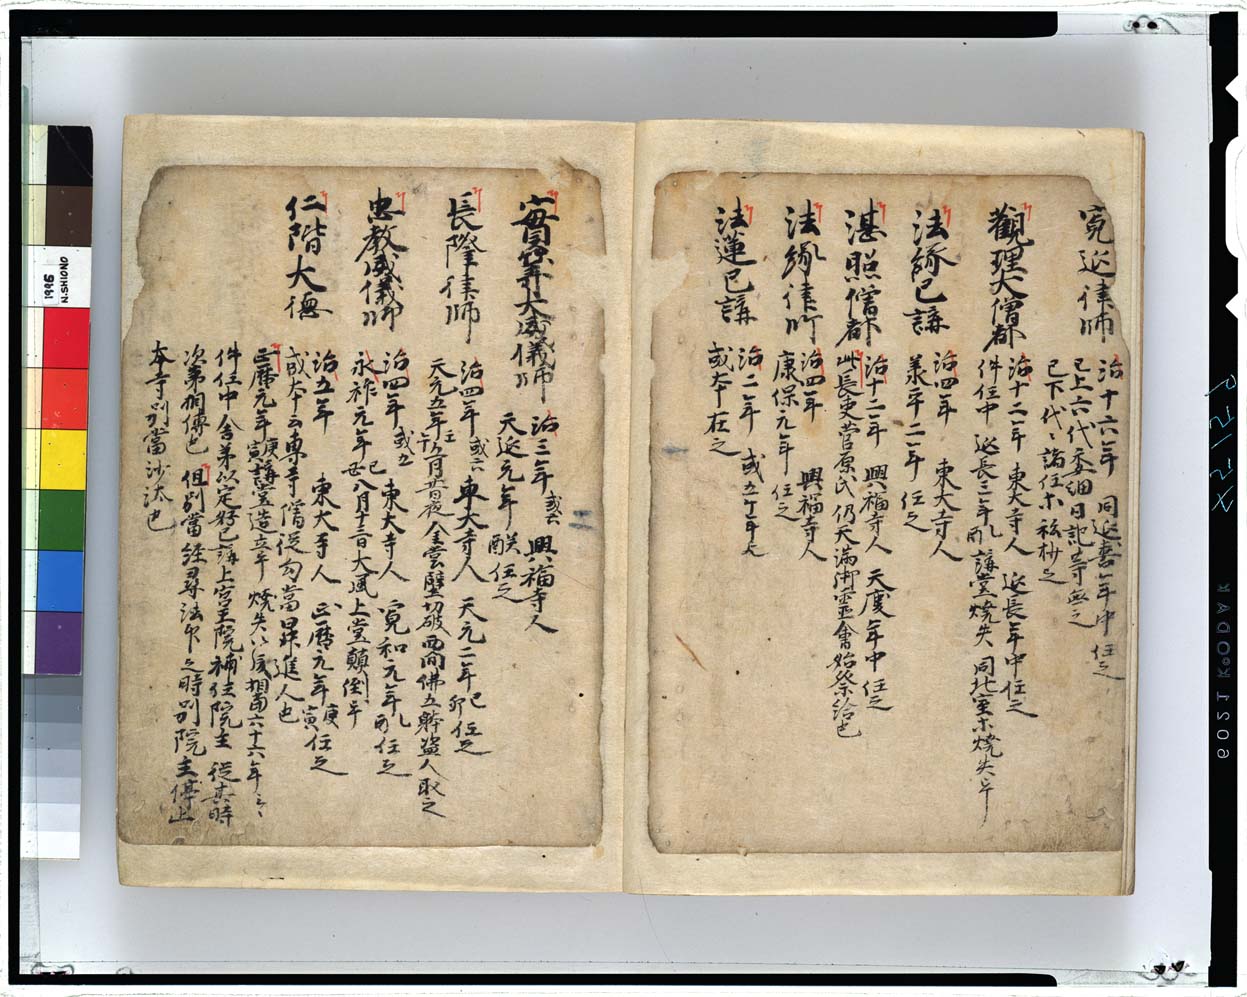 寛延律師 治十六年 同延喜年中 任之
已上六代委細日記等無之
已下代々諸任不核抄之
觀理大僧都 治十二年 東大寺人 延長年中任之
件任中 延長三年乙酉講堂燒失 同北室亦燒失畢
法縁已講 治四年 東大寺人
承平二年 任之
湛照僧都 治十二年 興福寺人 天慶年中任之
此長吏菅原氏仍天滿御霊會始祭給也
法縁律師 治四年 興福寺人
康保元年 任之
法蓮已講 治二年 或五ケ年
或本在之
大威儀師 治三年 或六 興福寺人
天延元年 任之
長隆律師 治四年 或六 東大寺人 天元二年己卯任之
天元五年壬午五月 夜金堂壁切破西間佛五躰盗人取之
忠教威儀師 治四年 或五 東大寺人 寛和元年乙酉任之
永祚元年己丑八月十三日大風上堂顛倒畢
仁階大德 治五年 東大寺人 正暦元年庚寅任之
或本云専寺僧從勾當昇進人也
正暦元年庚寅講堂造立畢 燒失以後相當六十六年云々
件任中舎弟以定好已講上宮王院補任院主 從其時
次第相傳也 但別當經尋法印之時別院主停止
本寺別當沙汰也
1996
N.SHIONO
6051 KODAK